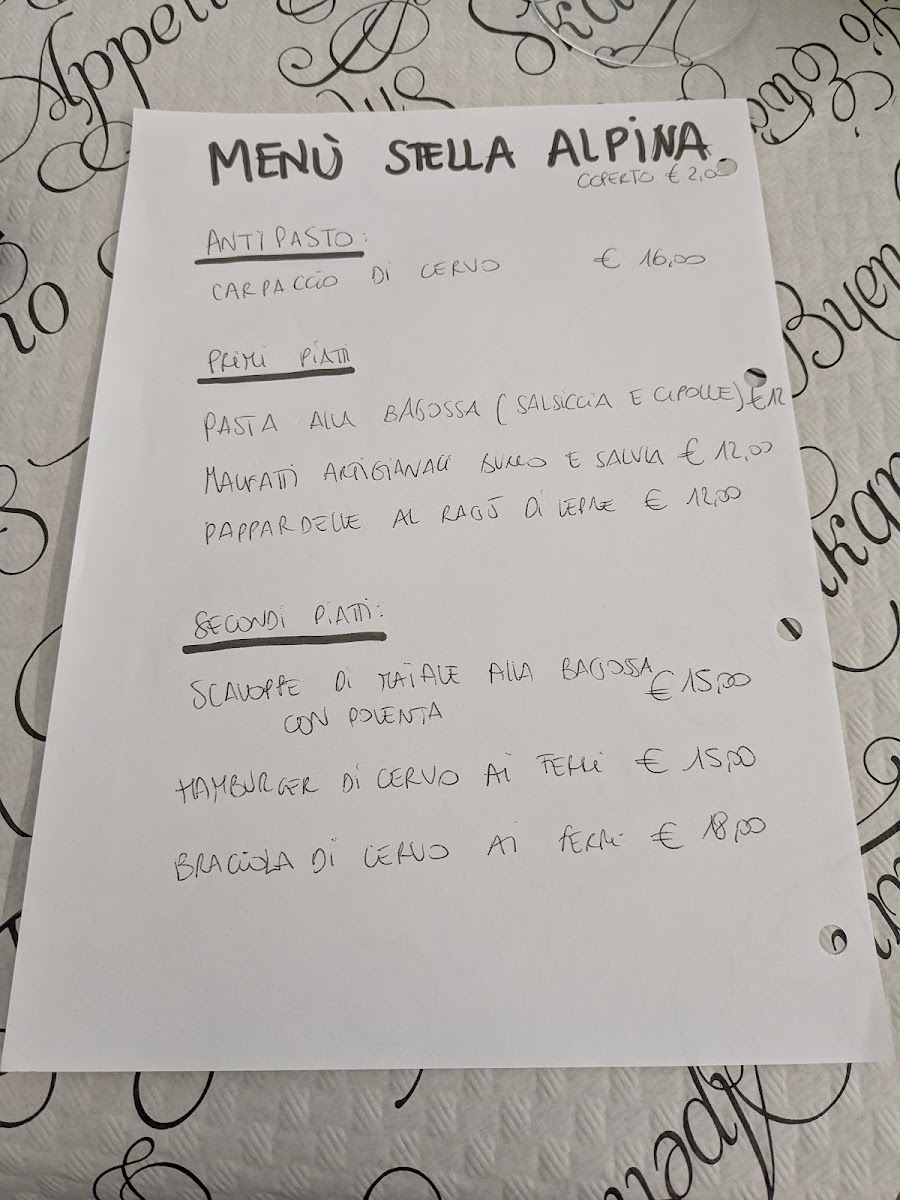 Appetit
Skan
MENÙ STELLA ALPINA
COPERTO € 2,00
ANTIPASTO:
CARPACCIO DI CERVO € 16,00
PRIMI PIATTI
PASTA ALLA BAGOSSA (SALSICCIA E CIPOLLE) € 12
MALFATTI ARTIGIANALI BURRO E SALVIA € 12,00
PAPPARDELLE AL RAGÙ DI LEPRE € 12,00
SECONDI PIATTI:
SCALOPPE DI MAIALE ALLA BAGOSSA € 15,00
CON POLENTA
HAMBURGER DI CERVO AI FERRI € 15,00
BRACIOLA DI CERVO AI FERRI € 18,00
Buen